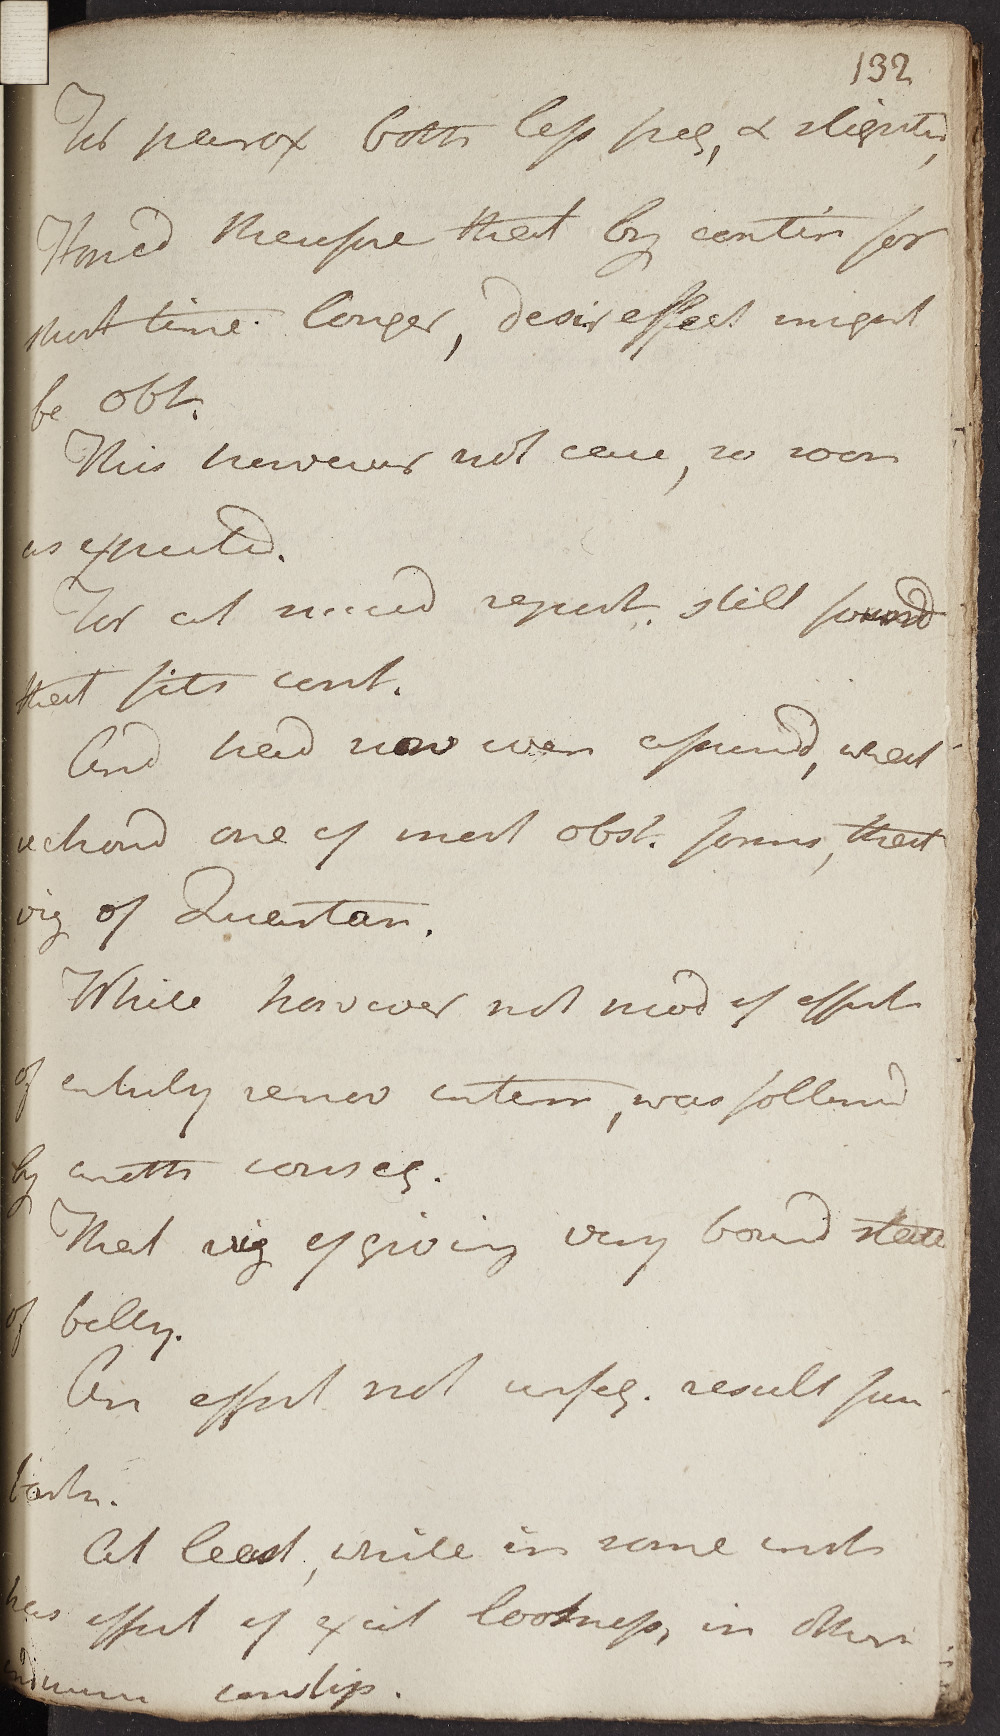 132
For parox both less freq, & slighter,
Hoped therefore that by contin for
short time longer, desir effect might
be obt.
This however not case, so soon
as expected.
For at succeed report, still found
that fits cont.
And had now even assumed, what
reckond one of most obst. forms, that
viz of Quartan.
While however not prod of effect
of entirely remov interm, was followed
by anoth conseq.
That viz of giving very bound state
of belly.
An effect not unfreq. result from
bark.
At least, while in some inst
has effect of excit looseness, in others
costip.